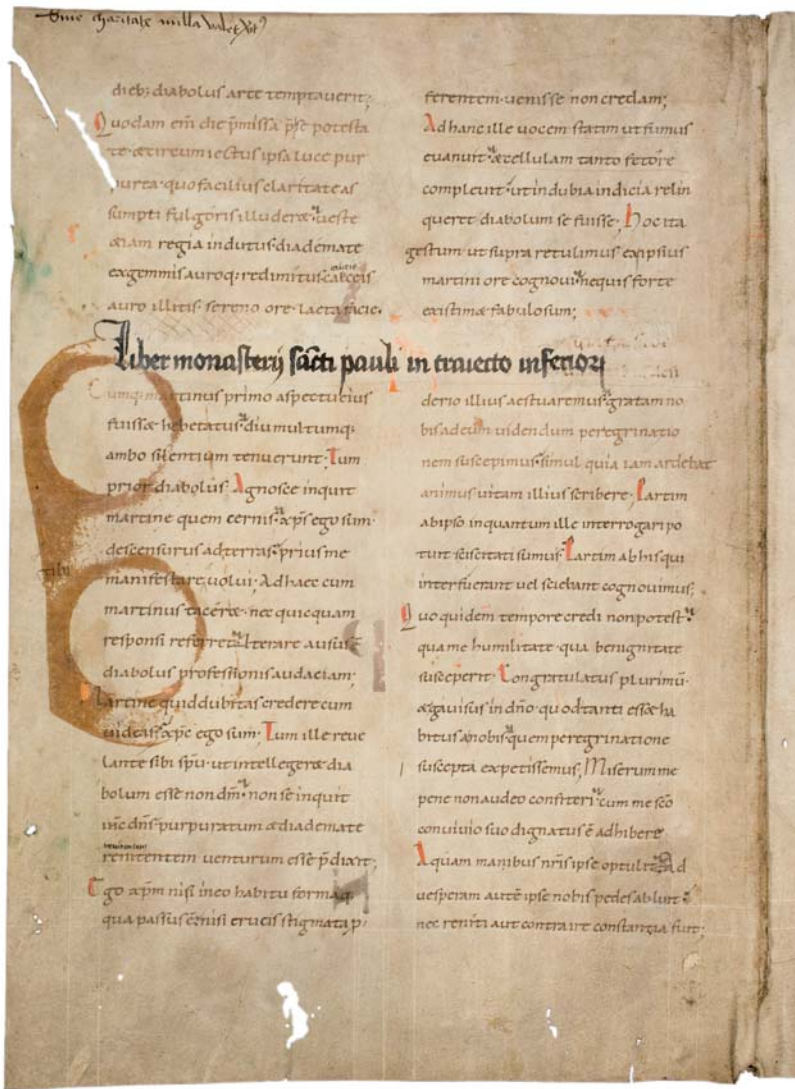 Sine charitate nulla valet
dieb; diabolus arte temptauerit;
Quodam em̄ die p̄missa p̄se potesta
te· & tireum iectus ipsa luce pur
purea· quo facilius claritate as
sumpti fulgoris illuder&· ueste
&iam regia indutus· diademate
ex gemmis auroq; redimitus· calceis
auro illitis· sereno ore· laeta facie·
Liber monasterij sancti pauli in traiecto inferiori
Cumq; martinus primo aspectu eius
fuiss& hebetatus· diu multumq;
ambo silentium tenuerunt· Tum
prior diabolus· Agnosce inquit
martine quem cernis· xp̄s ego sum·
descensurus ad terras· prius me
manifestare uolui· Ad haec cum
martinus tacer&· nec quicquam
responsi referr&· Iterare ausus ē
diabolus professionis audaciam·
Martine quid dubitas credere cum
uideas· xp̄c ego sum· Tum ille reue
lante sibi sp̄u· ut intelleger& dia
bolum esse non dn̄m· non se inquit
ih̄c dn̄s· purpuratum & diademate
renitentem uenturum esse p̄dixit;
Ego xp̄m nisi in eo habitu formaq;
qua passus ē· nisi crucis stigmata p̄
ferentem· uenisse non credam;
Ad hanc ille uocem statim ut fumus
euanuit· & cellulam tanto fetore
compleuit· ut indubia indicia relin
queret diabolum se fuisse· Hoc ita
gestum ut supra retulimus ex ipsius
martini ore cognoui· ne quis forte
existim& fabulosum;
derio illius aestuaremus· gratam no
bis ad eum uidendum peregrinatio
nem suscepimus· simul quia iam ardebat
animus uitam illius scribere· Partim
ab ipso in quantum ille interrogari po
tuit sciscitati sumus· Partim ab his qui
interfuerant uel sciebant cognouimus;
Quo quidem tempore credi non potest·
qua me humilitate qua benignitate
susceperit· Congratulatus plurimū·
& gauisus in dn̄o· quod tanti ess& ha
bitus a nobis· quem peregrinatione
suscepta expetissemus; Miserum me
pene non audeo confiteri· cum me sc̄o
conuiuio suo dignatus ē adhibere
Aquam manibus nr̄is ipse optulit· Ad
uesperam autē ipse nobis pedes abluit·
nec reniti aut contraire constantia fuit;